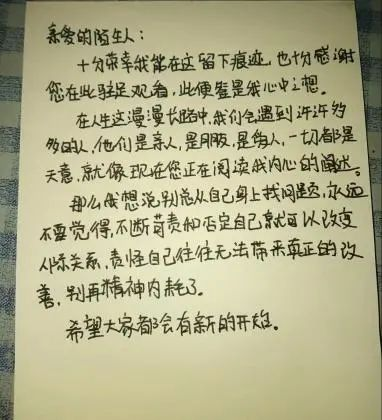 亲爱的陌生人：
十分荣幸我能在这留下痕迹，也十分感谢
您在此驻足观看，此便签是我心中之想。
在人生这漫漫长路中，我们会遇到许许多
多的人，他们是亲人，是朋友，是路人，一切都是
天意，就像现在您正在阅读我内心的阐述。
那么我想说别总从自己身上找问题，永远
不要觉得，不断苛责和否定自己就可以改变
人际关系，责怪自己往往无法带来真正的改
善，别再精神内耗了。
希望大家都会有新的开始。